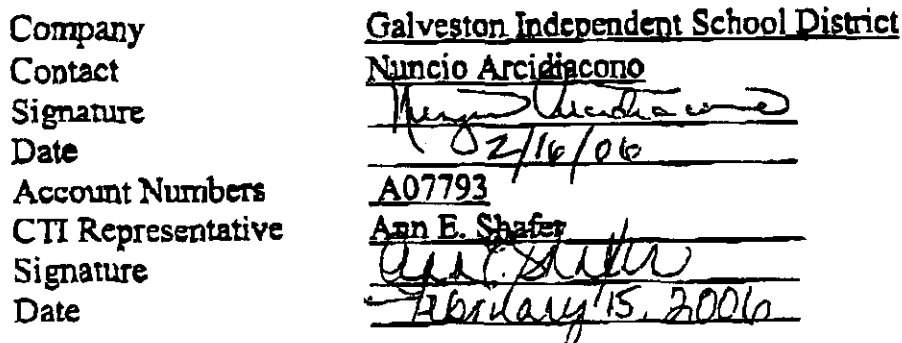 Company Galveston Independent School District
Contact Nuncio Arcidiacono
Signature Nunzio Arcidiacono
Date 2/16/06
Account Numbers A07793
CTI Representative Ann E. Shafer
Signature Ann E. Shafer
Date February 15, 2006